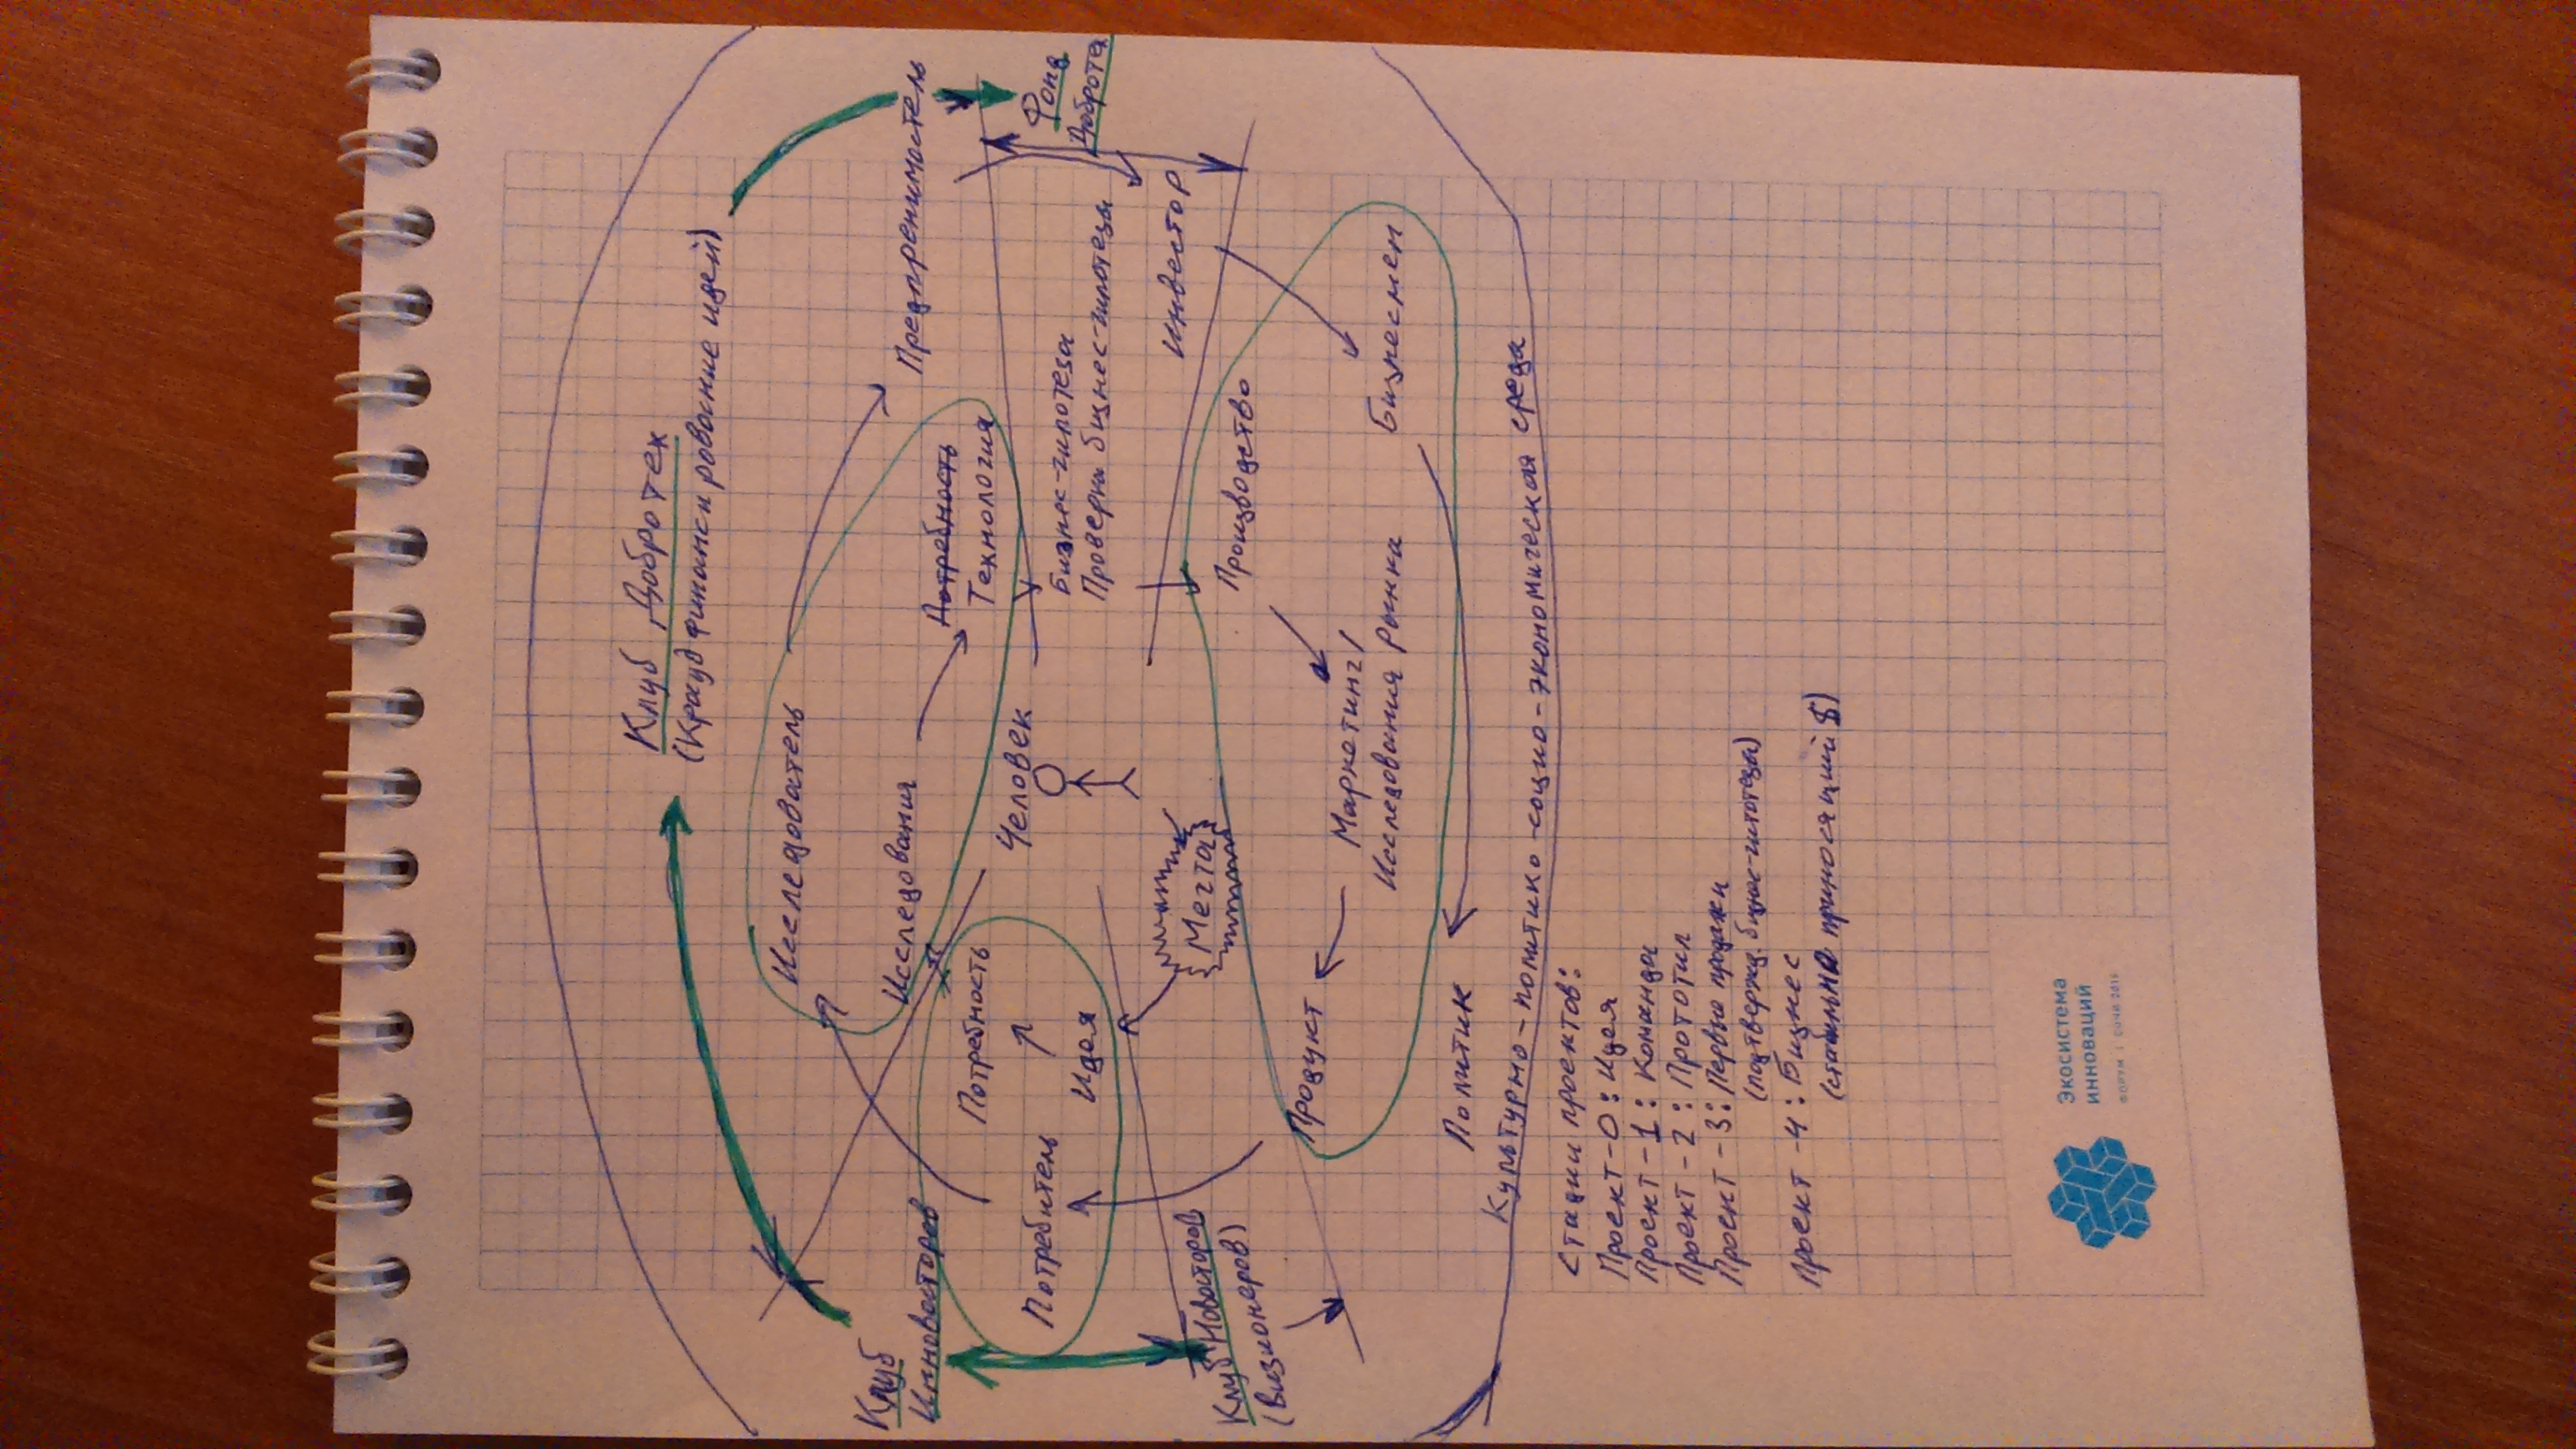 Клуб Добротех
(Краудфинансирование идей)
Исследователь
Клуб
Инноваторов
Исследования
Предприниматель
Потребность
Технология
Потребность
Человек
Потребитель
Идея
Фонд
Добротех
Бизнес-гипотеза
Проверка бизнес-гипотезы
Мечта
Инвестор
Клуб Новаторов
(Визионеров)
Производство
Продукт
Маркетинг/
Исследования рынка
Бизнесмен
Политик
Культурно-политико-социо-экономическая среда
Стадии проектов:
Проект-0: Идея
Проект-1: Команда
Проект-2: Прототип
Проект-3: Первые продажи
(подтвержд. бизнес-гипотезы)
Проект-4: Бизнес
(стабильно приносящий $)
Экосистема
инноваций
ФОРУМ | СОЧИ